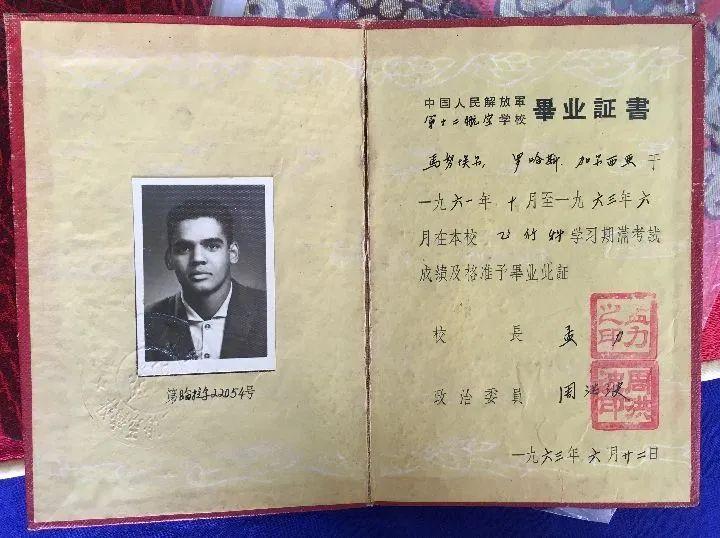 第哈拉字22054号
中国人民解放軍
第十二航空学校
畢业証書
馬努埃尔, 罗哈斯. 加尔西亚 于
一九六一年 十月至一九六三年六
月在本校 飞行科学习期滿考試
成績及格准予畢业此証
校 長 孟力
孟力之印
政治委員 周洪波
周洪波印
一九六三年六月廿二日